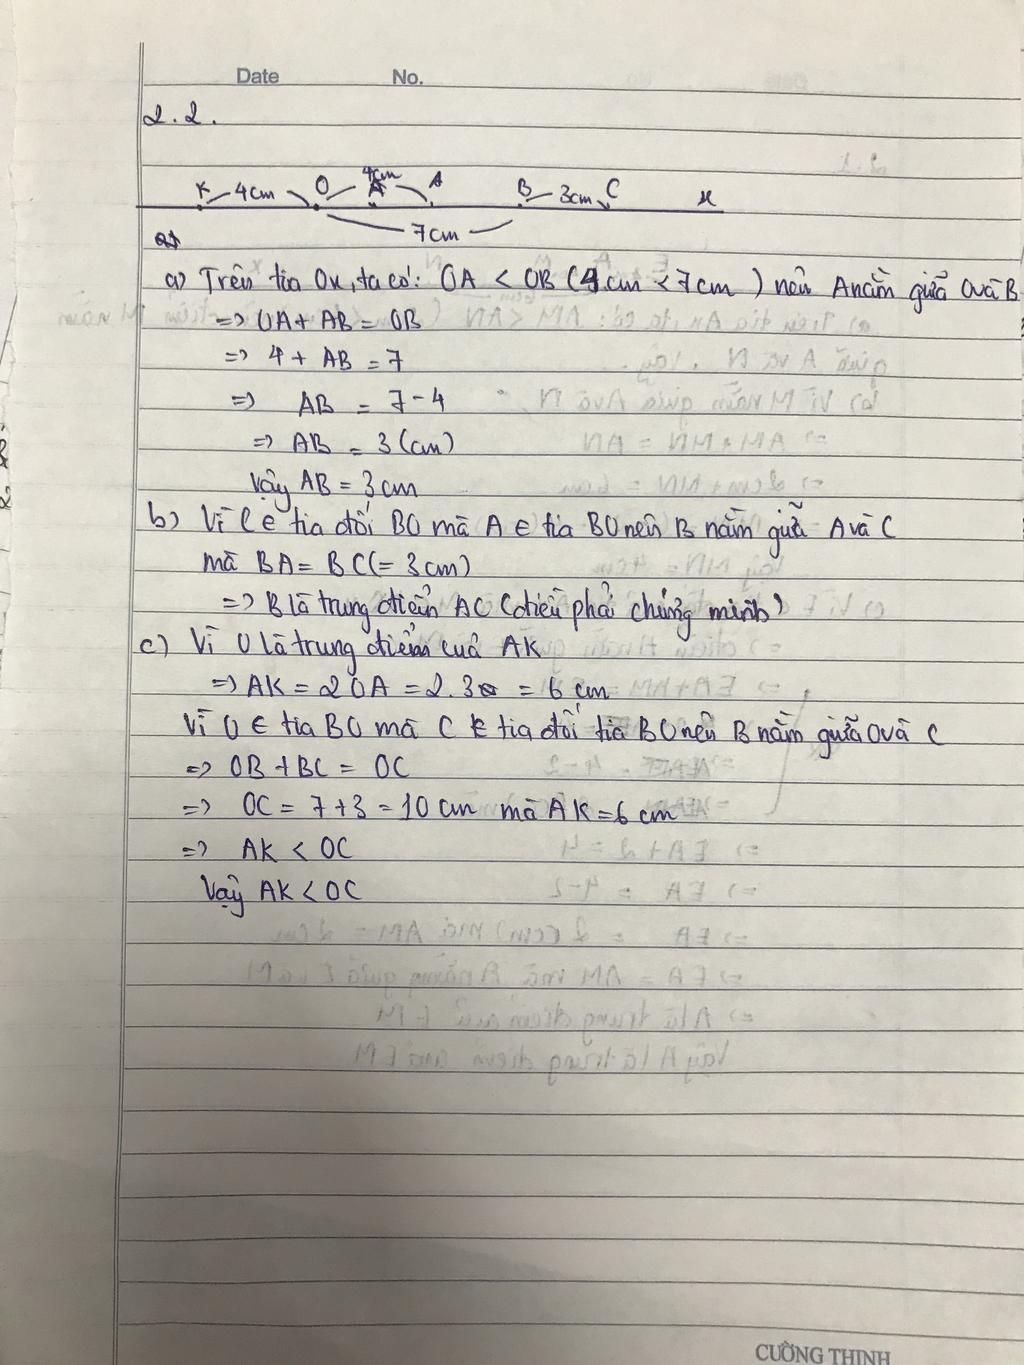 Date No.
2.2.
K 4cm O 4cm A A B 3cm C x
7cm
a) Trên tia Ox, ta có: OA < OB (4cm < 7cm) nên A nằm giữa O và B
=> OA + AB = OB
=> 4 + AB = 7
=> AB = 7-4
=> AB = 3 (cm)
Vậy AB = 3cm
b) Vì C ∈ tia đối BO mà A ∈ tia BO nên B nằm giữa A và C
mà BA = BC (= 3cm)
=> B là trung điểm AC (điều phải chứng minh)
c) Vì O là trung điểm của AK
=> AK = 2OA = 2.3 = 6 cm
Vì O ∈ tia BO mà C ∈ tia đối tia BO nên B nằm giữa O và C
=> OB + BC = OC
=> OC = 7+3 = 10 cm mà AK = 6 cm
=> AK < OC
Vậy AK < OC
CƯỜNG THỊNH